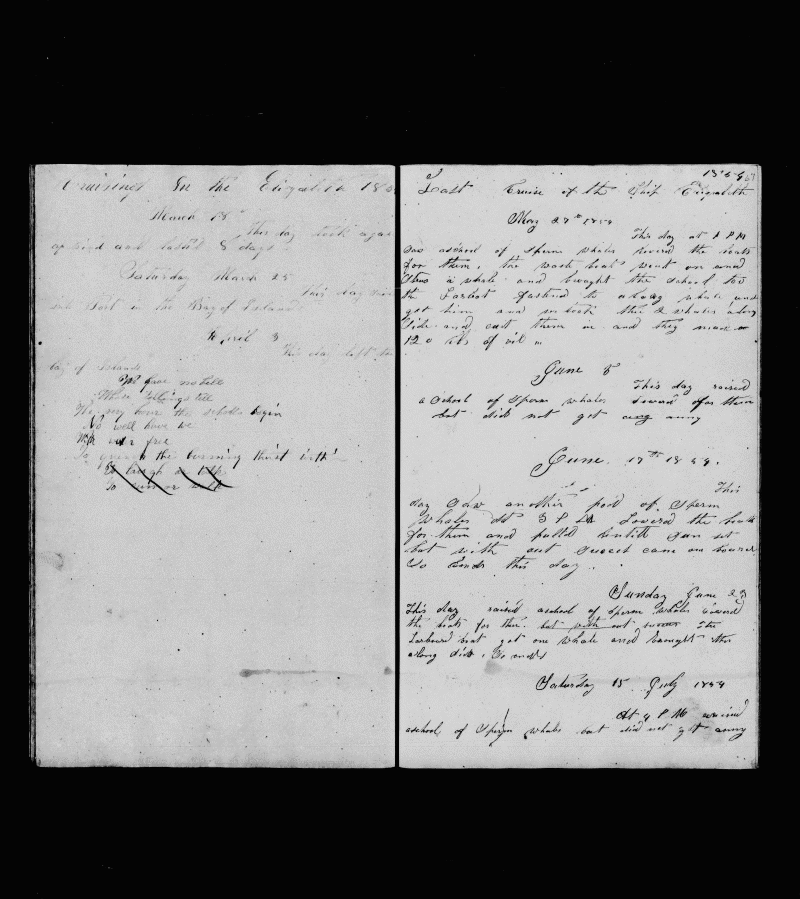 Cruising In the Elizabeth 18
March 18th
This day took again
a bird and lasted 8 days
Saturday March 25
This day
Port in the Bay of Islands
April 3
This day left the
bay of Islands
We have no
till
The very hour the begin
No well have we
free
To quench the burning thirst with
To laugh or
To or
1854 67
Last Cruise of the Ship Elizabeth
May 27th 1854
This day at 1 P M
saw aschool of sperm whales lowerd the boats
for them, the waste boat went on and
Strus a whale and brought the school too
the Larbert fastend to whale and
got him and took the 2 whales along
Side and cut them in and they made
120 bls of oil
June 8
This day raised
a School of Sperm whales lowerd for them
but did not get any
June 17th 1854.
This
day Saw another pod of Sperm
Whales At 3 P M Lowerd the boats
for them and pulled untill Sun set
but with out sucsess came on bourd
So Ends this day.
Sunday June 23
This day raised aschool of sperm whales lowerd
the boats for them but with out The
Larbourd boat got one whale and brought him
along side. So ends
Saturday 15 July 1854
At 4 P M raised
aschool of Sperm whales but did not get anny